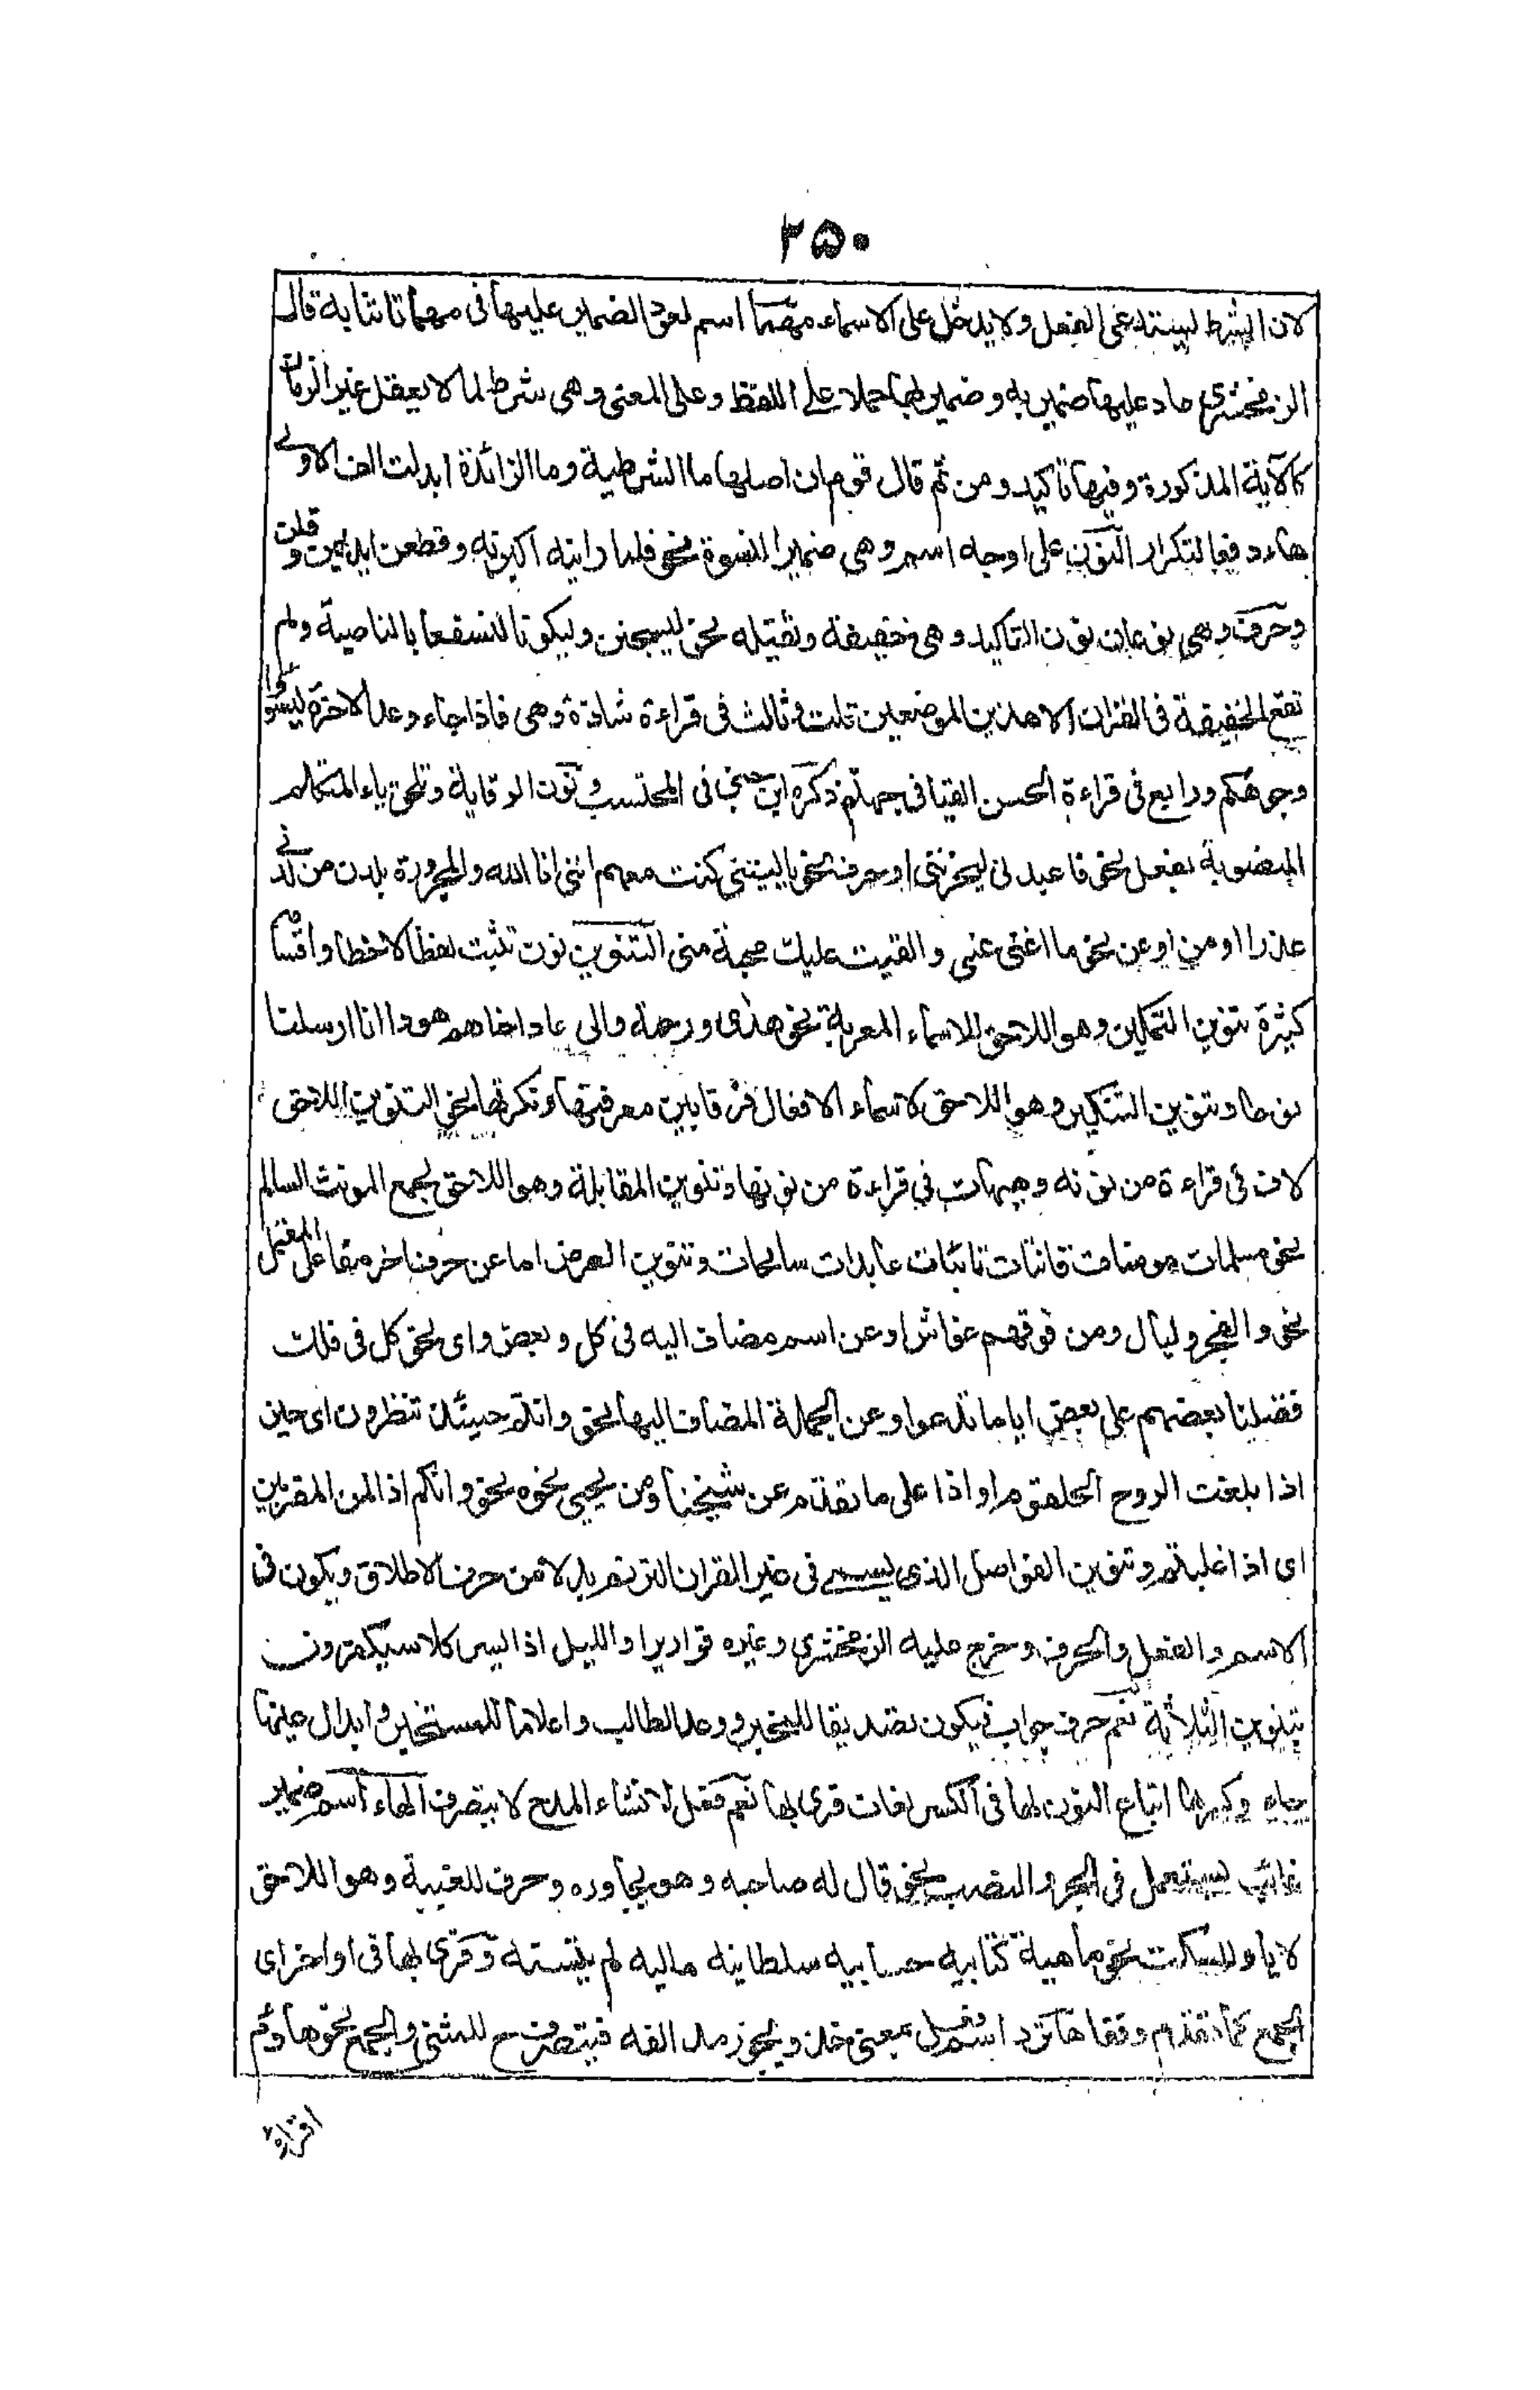 ٢٥٠
لان الشرط يستدعى الفعل ولا يدخل على الاسماء مهما اسم لعود الضمير عليها فى مهما تاتنا به قال
الزمخشرى عاد عليها ضمير به وضمير بها حملا على اللفظ وعلى المعنى وهى شرط لما لا يعقل غير الزمان
كالآية المذكورة وفيها تاكيد ومن ثم قال قوم ان اصلها ما الشرطية وما الزائدة ابدلت الف الاولى
هاء دفعا لتكرار النون على اوجه اسم وهى ضمير النسوة نحو فلما راينه اكبرنه وقطعن ايديهن وقلن
وحرف وهى نوعان نون التاكيد وهى خفيفة وثقيلة نحو ليسجنن وليكونا لنسفعا بالناصية ولم
تقع الخفيفة فى القران الا هذين الموضعين قلت وثالث فى قراءة شاذة وهى فاذا جاء وعد الاخرة ليسوًا
وجوهكم ورابع فى قراءة الحسن القيا فى جهنم ذكره ابن جنى فى المحتسب ونون الوقاية وتلحق ياء المتكلم
المنصوبة بفعل نحو فاعبدنى ليحزننى او حرف نحو ياليتنى كنت معهم اننى انا الله والمجرورة بلدن من لدنى
عذرا او من او عن نحو ما اغنى عنى والقيت عليك محبة منى التنوين نون تثبت لفظا لا خطا واقسامه
كثيرة تنوين التمكين وهو اللاحق للاسماء المعربة نحو هدى ورحمة والى عاد اخاهم هودا انا ارسلنا
نوحا وتنوين التنكير وهو اللاحق لاسماء الافعال فرقا بين معرفتها ونكرتها نحو التنوين اللاحق
لاف فى قراءة من نونه وهيهات فى قراءة من نونها وتنوين المقابلة وهو اللاحق لجمع المونث السالم
نحو مسلمات مومنات قانتات تائبات عابدات سائحات وتنوين العوض اما عن حرف اخر مفاعل المعتل
نحو والفجر وليال ومن فوقهم غواش او عن اسم مضاف اليه فى كل وبعض واى نحو كل فى فلك
فضلنا بعضهم على بعض اياما تدعوا وعن الجملة المضاف اليها نحو وانتم حينئذ تنظرون اى حين
اذا بلغت الروح الحلقوم او اذا على ما تقدم عن شيخنا ومن يحيى نحوه نحو وانكم اذا لمن المقربين
اى اذا غلبتم وتنوين الفواصل الذى يسمى فى غير القران الترنم بدلا من حرف الاطلاق ويكون فى
الاسم والفعل والحرف وخرج عليه الزمخشرى وغيره قواريرا والليل اذا يسر كلا سيكفرون
بتنوين الثلاثة نعم حرف جواب فيكون تصديقا للمخبر ووعدا للطالب واعلاما للمستخبر وابدال عينها
حاء وكسرها اتباع النون لها فى الكسر لغات قرى بها نعم فعل لانشاء المدح لا يتصرف الهاء اسم ضمير
غائب يستعمل فى الجر والنصب نحو قال له صاحبه وهو يحاوره وحرف للغيبة وهو اللاحق
لايا وللسكت نحو ماهية كتابيه حسابيه سلطانيه ماليه لم يتسنه وقرى بها فى اواخر اى
الجمع كما تقدم وقفا ها ترد اسم فعل بمعنى خذ ويجوز مد الفه فيتصرف ح للمثنى والجمع نحو هاؤم
اقرءوا